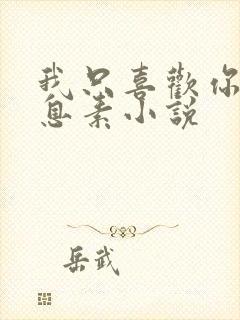 我只喜歡你
息素小説
岳武